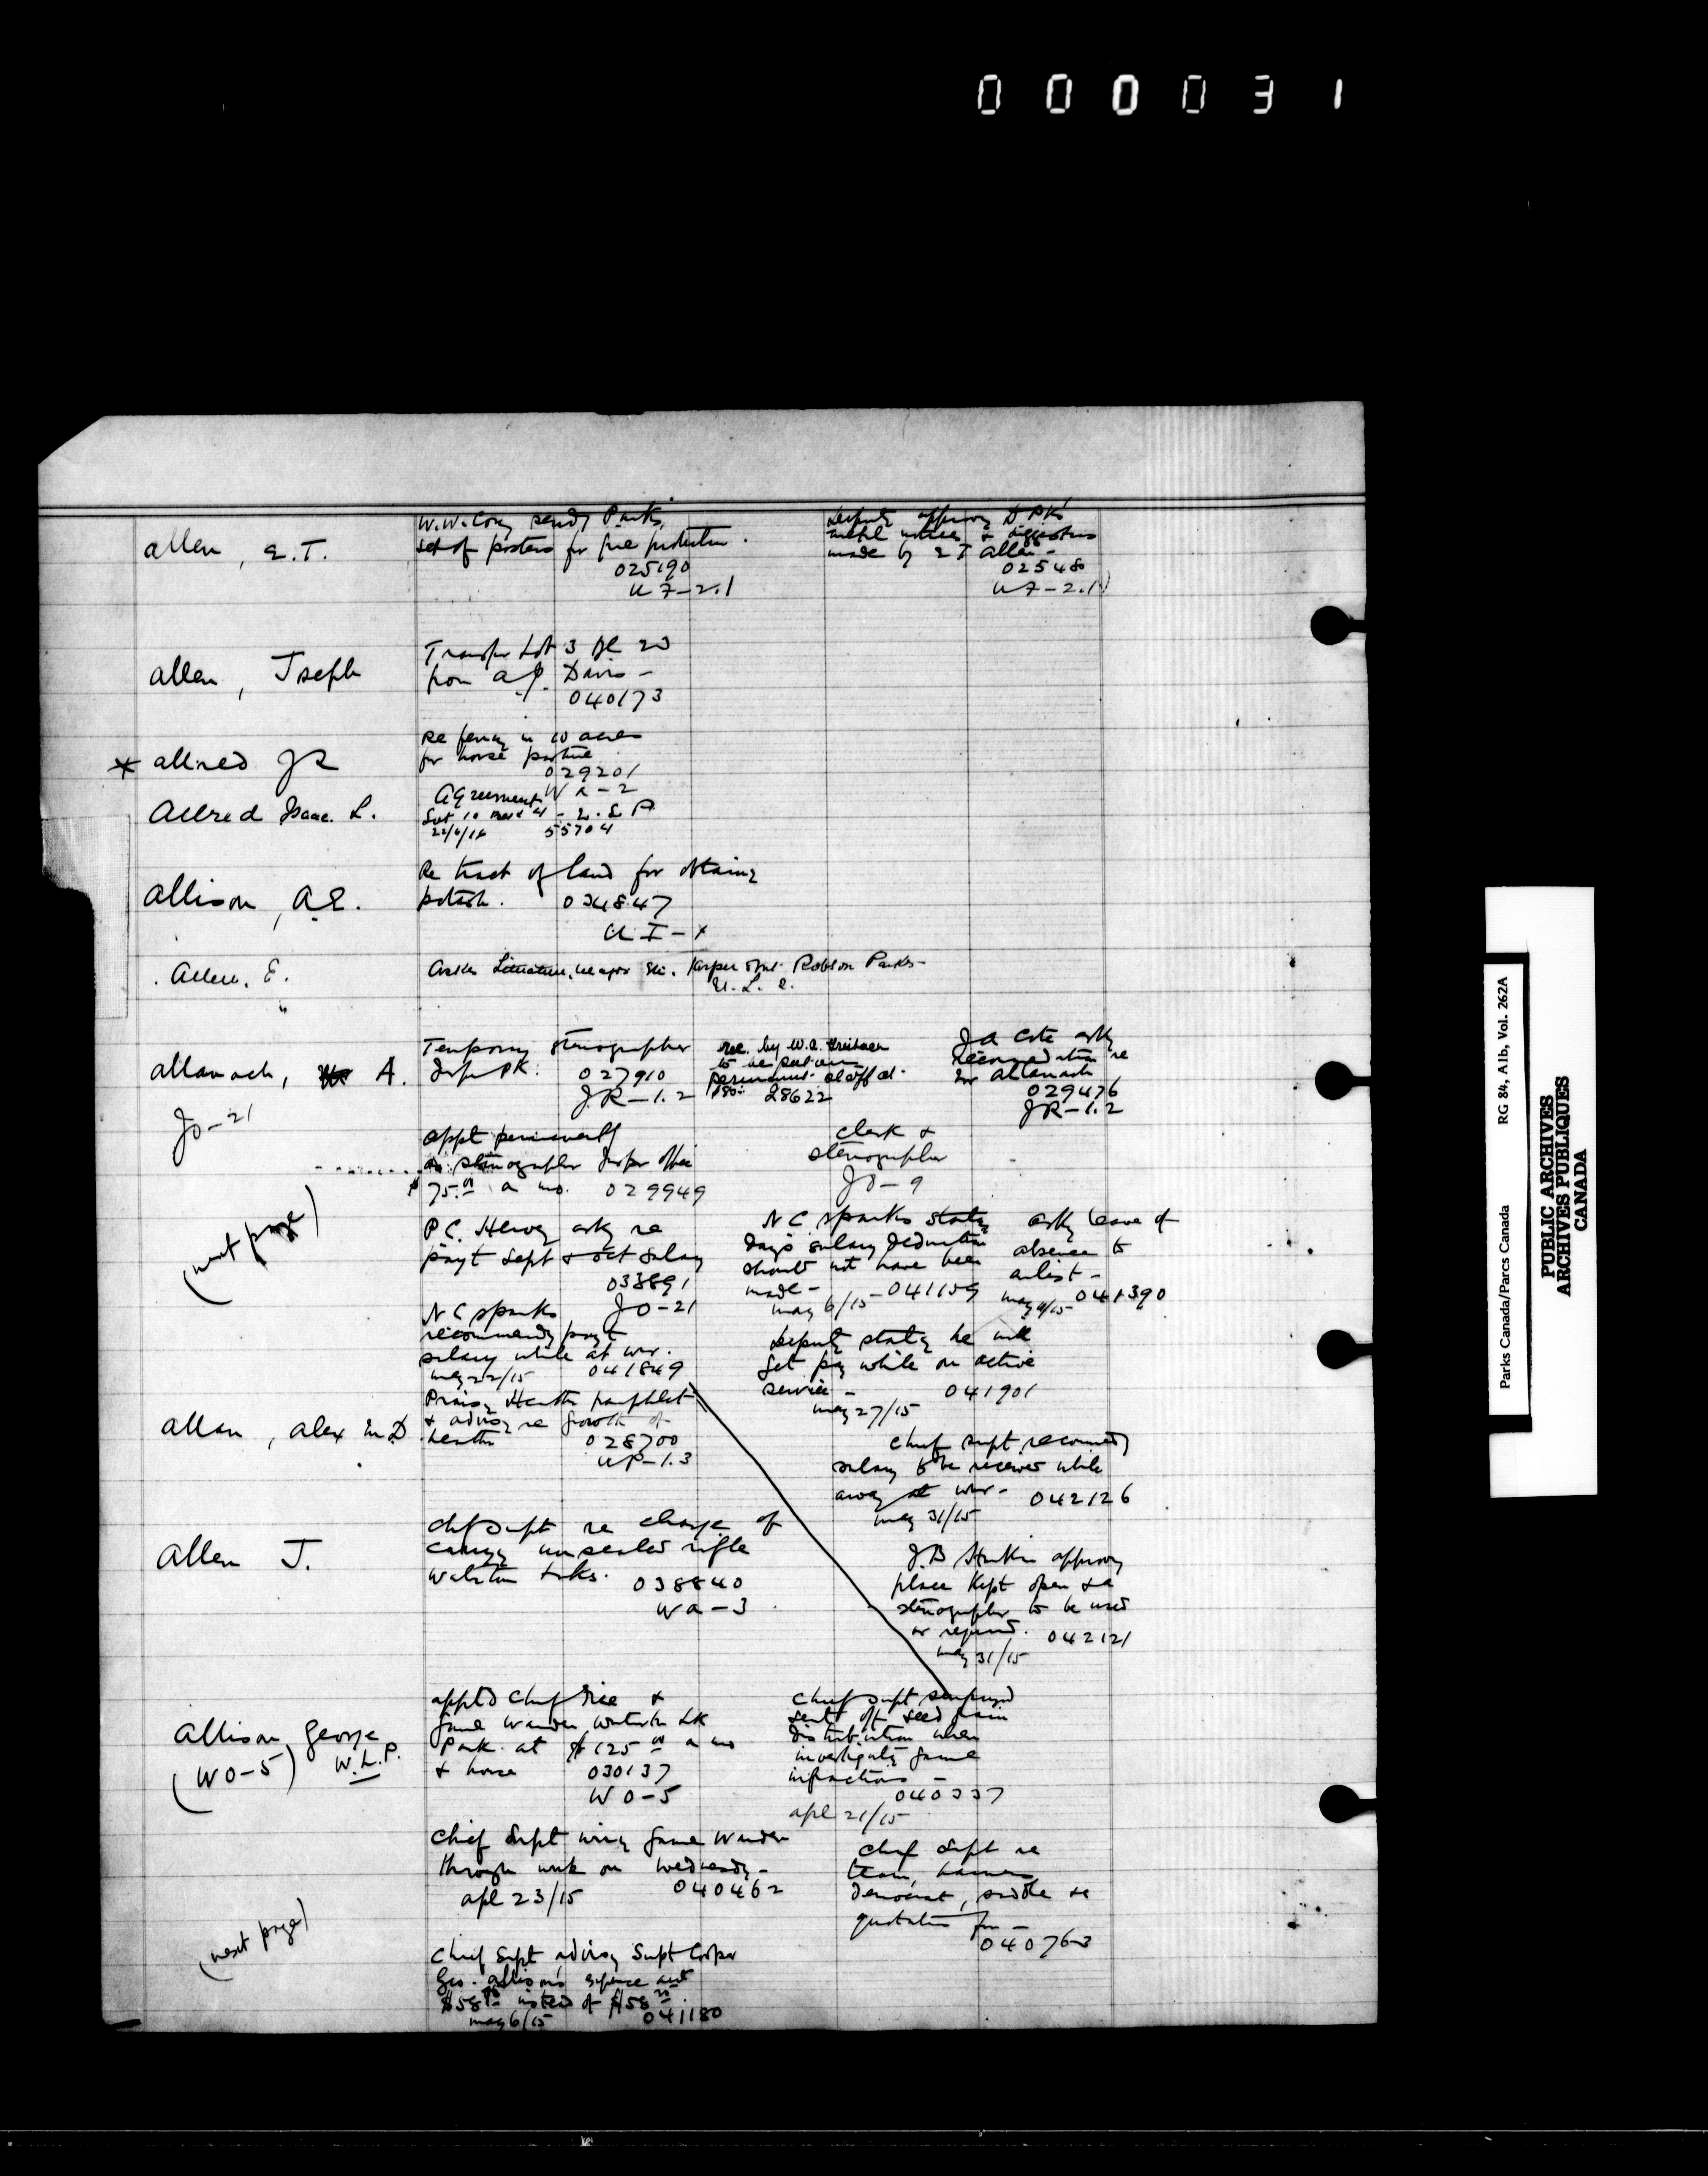 000031
Allen, E.T.
W.W. Cory sendg Parks
set of posters for fire protection.
025190
U 7-2.1
Deputy approvg D Pks
metal notices & suggestions
made by E T Allen -
02548
U 7-2.1
Allen, Joseph
Transfer Lot 3 Bl 20
from A.J. Davis -
040173
* Allred J R
Re fencing in 10 acres
for horse pasture
029201
Wa-2
Allred Isaac L.
Agreement
22/6/18 55704
Allison, A.E.
Re tract of land for obtaing
potash. 034847
U I-x
Allen, E.
Asks Literature, maps etc. Jasper & Mt. Robson Parks -
U. L. 2.
"
Allanach, A.
JO-21
Temporary stenographer
Jasper Pk. 027910
JR-1.2
rec. by W.A.
to be put on
permanent staff at
$80- 28622
J A Cote askg
recommendation re
Allanach
029476
JR-1.2
Appt permanently
as stenographer Jasper office
$75.00 a mo. 029949
clerk &
stenographer
JO-9
(next page)
P.C. Hervey askg re
payt Sept & Oct salary
033891
JO-21
N C Sparks statg
days salary deduction
should not have been
made - 041159
May 6/15
askg leave of
absence to
enlist -
May 11/15 041390
N C Sparks
recommendg payt
salary while at war.
May 22/15 041849
Deputy statg he will
get pay while on active
service - 041901
May 27/15
Allan, Alex M.D.
Praisg Heather pamphlet
& advisg re growth of
heather 028700
UP-1.3
Chief Supt recommdg
salary to be received while
away at war - 042126
May 31/15
Allen J.
Ch Supt re charge of
carryg unsealed rifle
Waterton Lks. 038840
Wa-3
J.B Harkin approvg
place kept open & a
stenographer to be used
as required. 042121
May 31/15
Allison, George
(WO-5) W.L.P.
Apptd Chief Fire &
Game Warden Waterton Lk
Park at $125 00 a mo
& horse 030137
WO-5
Chief Supt
seed grain
distribution when
investigatg game
infractions -
040337
Apl 21/15
Chief Supt wirg Game Warden
through work on Wednesdy -
Apl 23/15 040462
Chief Supt re
team, harness
democrat, saddle &c
quotation for -
040763
(next page)
Chief Supt advisg Supt Cooper
Geo. Allison's expense acct
$58 instead of $58
May 6/15 041180
Parks Canada/Parcs Canada RG 84, A1b, Vol. 262A
PUBLIC ARCHIVES
ARCHIVES PUBLIQUES
CANADA